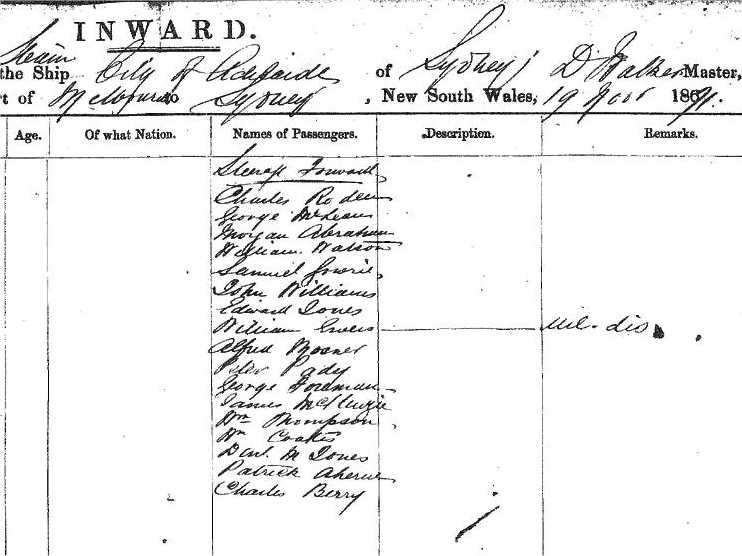 INWARD.
Steam
the Ship City of Adelaide of Sydney, D Walker Master,
rt of Melbourne to Sydney, New South Wales, 19 Novr 1871.
Age. Of what Nation. Names of Passengers. Description. Remarks.
Steerage Forward
Charles Roden
George McLean
Morgan Abraham
William Watson
Samuel
John Williams
Edward Jones
William
Alfred
Peter Pady
George Foreman
James McKenzie
Wm Thompson
Wm Coates
Danl. M Jones
Patrick Aherne
Charles Berry